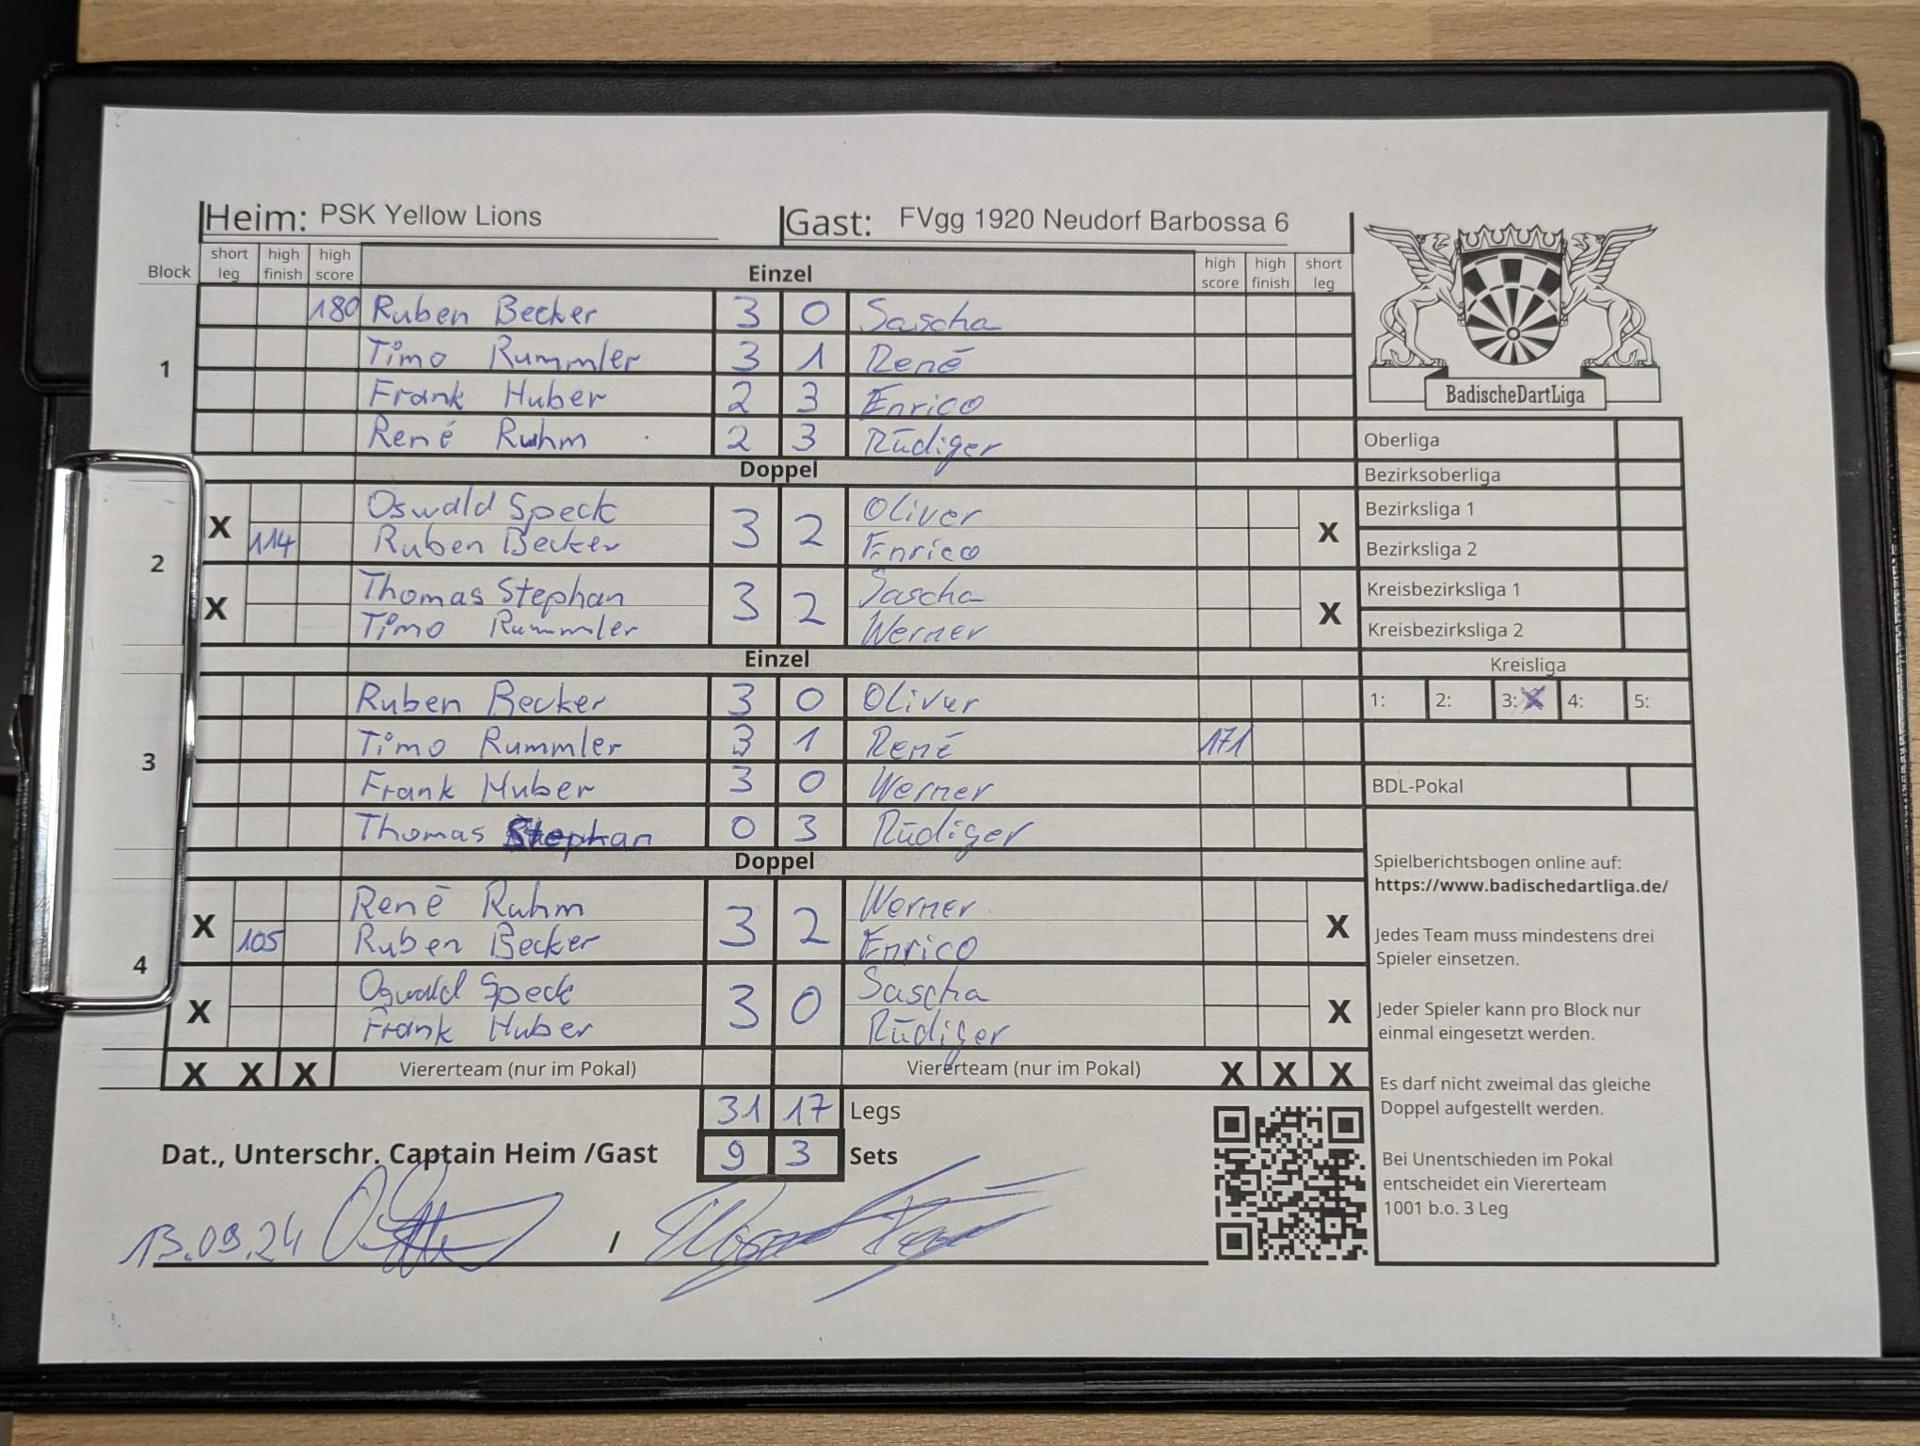 Heim: PSK Yellow Lions Gast: FVgg 1920 Neudorf Barbossa 6
Block short leg high finish high score Einzel high score high finish short leg
1
180 Ruben Becker 3 0 Sascha
Timo Rummler 3 1 René
Frank Huber 2 3 Enrico
René Ruhm 2 3 Rüdiger
Doppel
2
X Oswald Speck 3 2 Oliver X
114 Ruben Becker Enrico
X Thomas Stephan 3 2 Sascha X
Timo Rummler Werner
Einzel
3
Ruben Becker 3 0 Oliver
Timo Rummler 3 1 René 171
Frank Huber 3 0 Werner
Thomas Stephan 0 3 Rüdiger
Doppel
4
X René Ruhm 3 2 Werner X
105 Ruben Becker Enrico
X Oswald Speck 3 0 Sascha X
Frank Huber Rüdiger
X X X Viererteam (nur im Pokal) Viererteam (nur im Pokal) X X X
31 17 Legs
Dat., Unterschr. Captain Heim /Gast 9 3 Sets
13.09.24 /
BadischeDartLiga
Oberliga
Bezirksoberliga
Bezirksliga 1
Bezirksliga 2
Kreisbezirksliga 1
Kreisbezirksliga 2
Kreisliga
1: 2: 3: X 4: 5:
BDL-Pokal
Spielberichtsbogen online auf:
https://www.badischedartliga.de/
Jedes Team muss mindestens drei
Spieler einsetzen.
Jeder Spieler kann pro Block nur
einmal eingesetzt werden.
Es darf nicht zweimal das gleiche
Doppel aufgestellt werden.
Bei Unentschieden im Pokal
entscheidet ein Viererteam
1001 b.o. 3 Leg